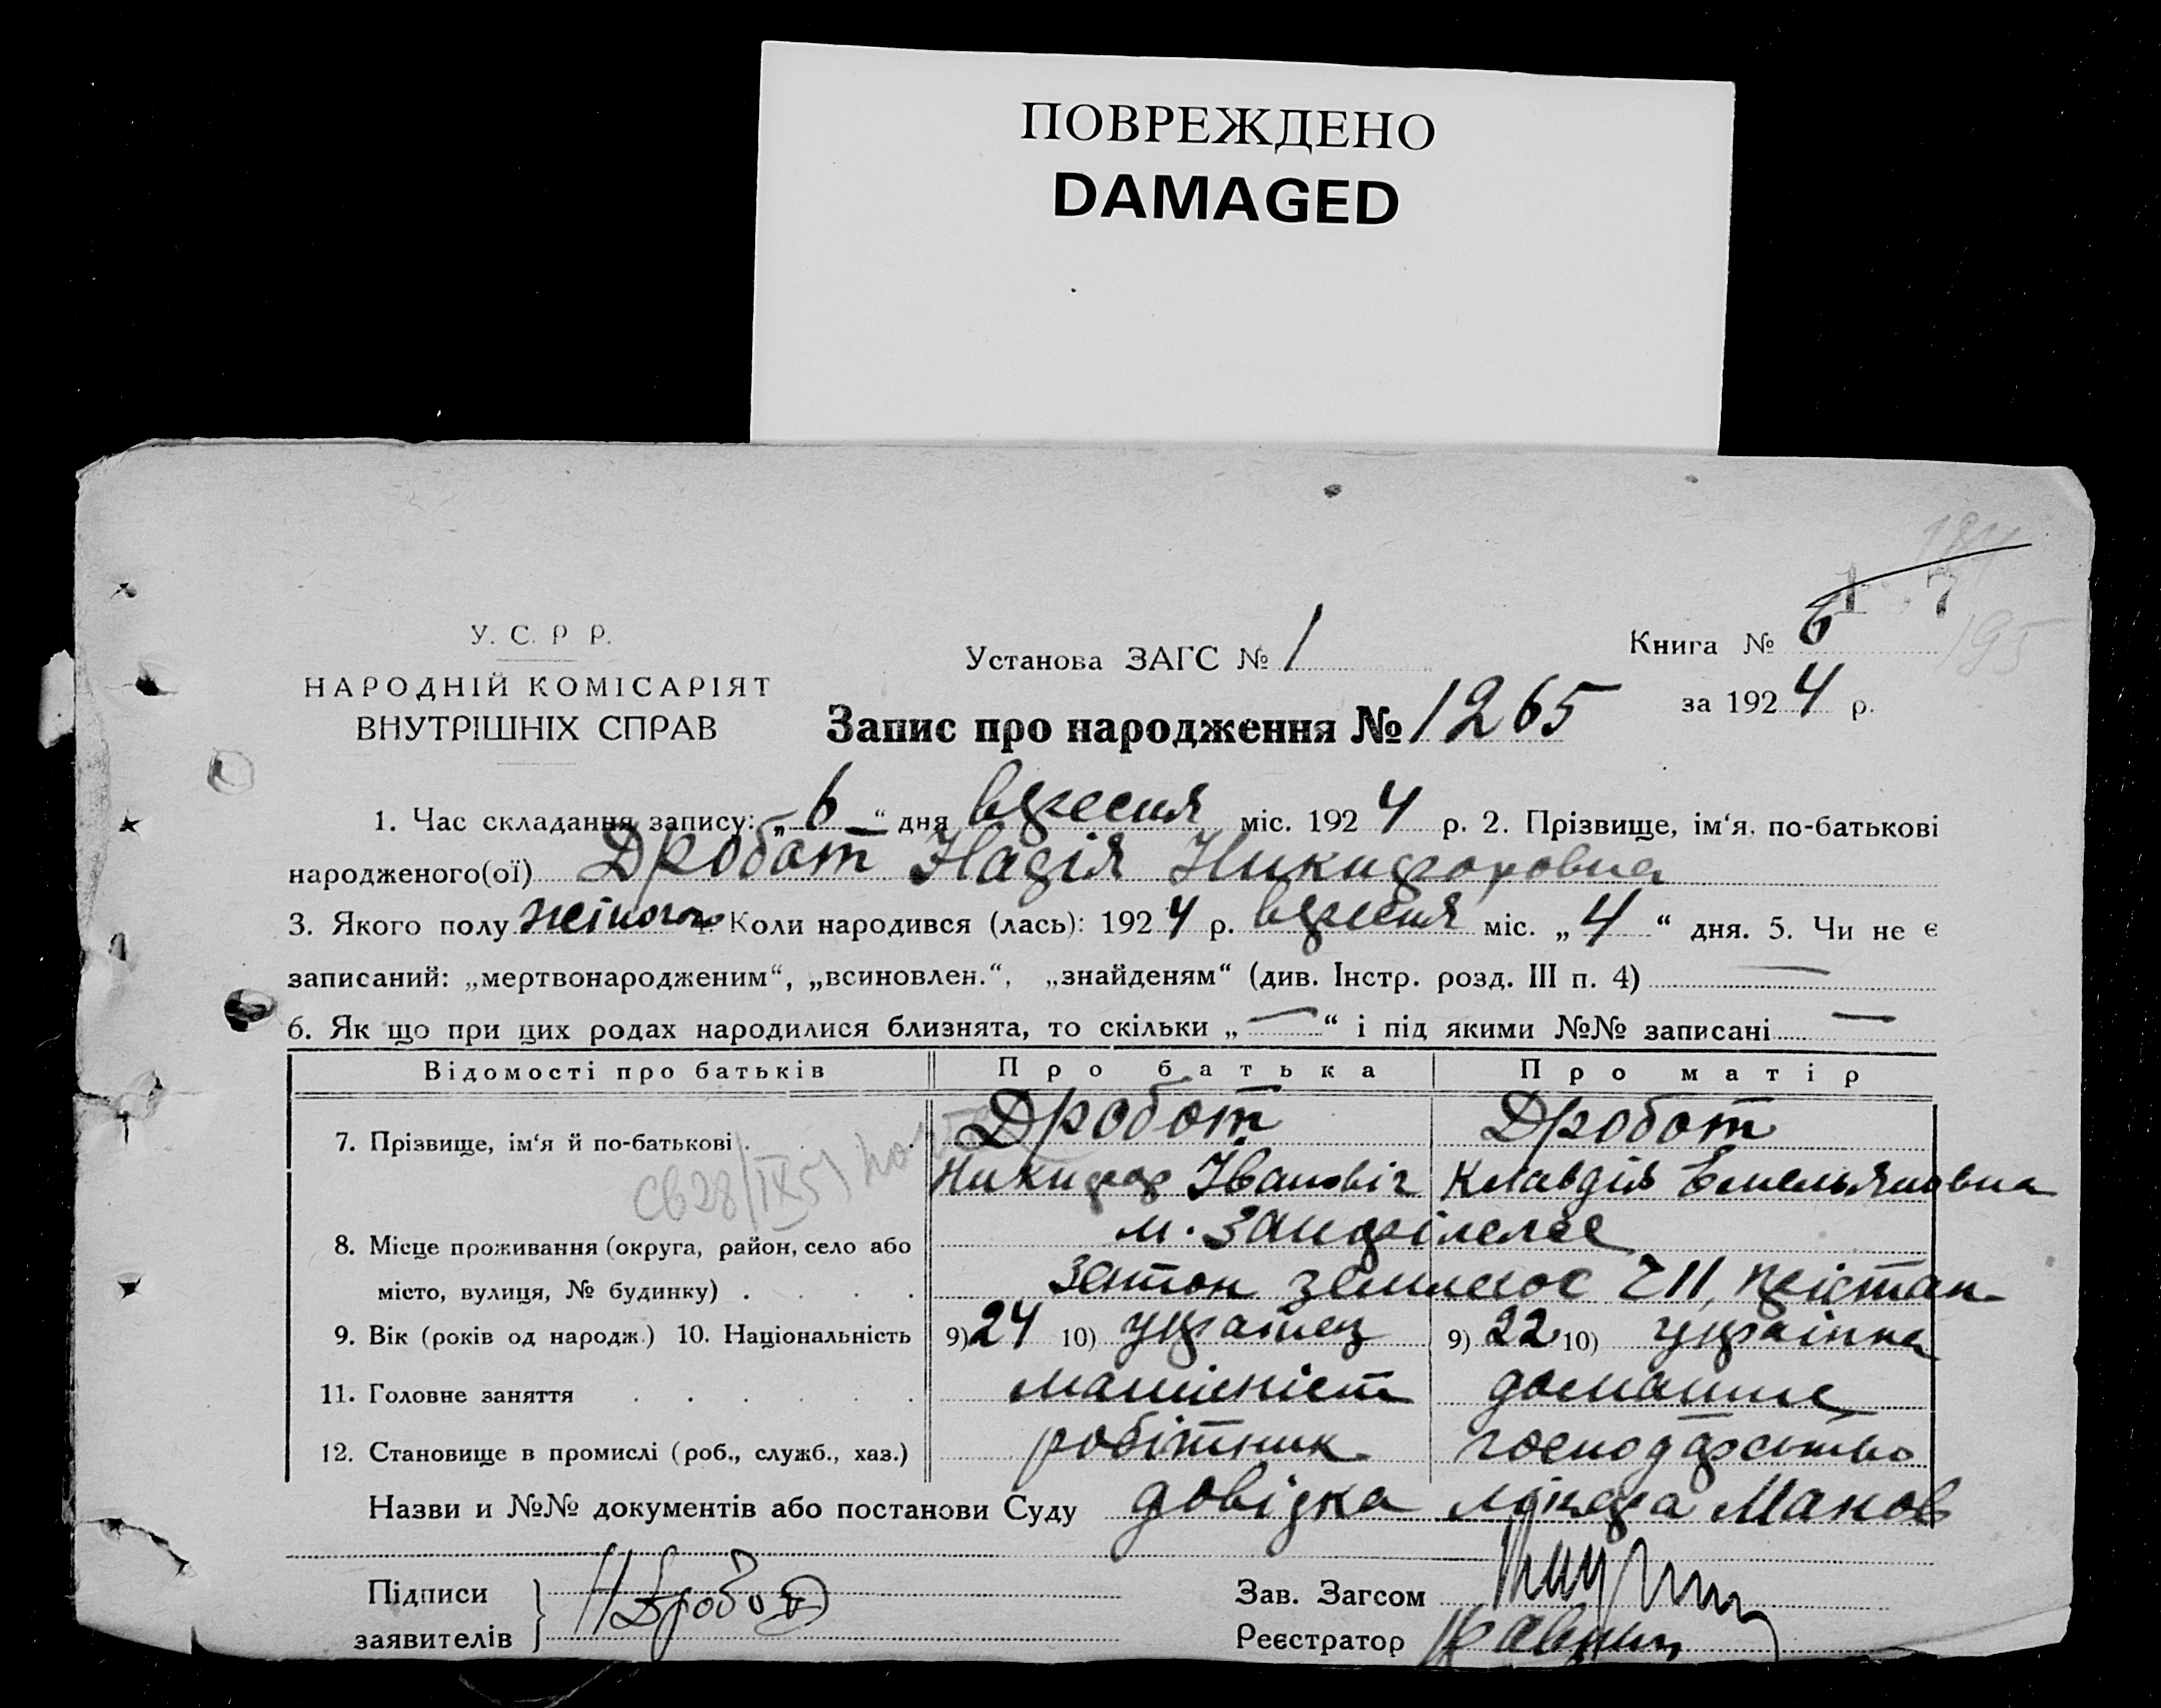 ПОВРЕЖДЕНО
DAMAGED
У. С. Р Р.
НАРОДНІЙ КОМІСАРІЯТ
ВНУТРІШНІХ СПРАВ
Установа ЗАГС № 1
Книга № 6
195
за 1924 р.
Запис про народження № 1265
1. Час складання запису: „6“ дня вересня міс. 1924 р. 2. Прізвище, ім‘я, по-батькові
народженого(ої) Дробот Надія Никифоровна
3. Якого полу жіночо 4. Коли народився (лась): 1924 р. вересня міс. „4“ дня. 5. Чи не є
записаний: „мертвонародженим“, „всиновлен.“, „знайденям“ (див. Інстр. розд. III п. 4) —
6. Як що при цих родах народилися близнята, то скільки „—“ і під якими №№ записані —
Відомості про батьків Про батька Про матір
7. Прізвище, ім‘я й по-батькові Дробот Дробот
Никифор Іванович Клавдія Емельяновна
8. Місце проживання (округа, район, село або м.
місто, вулиця, № будинку) Затон землесос
9. Вік (років од народж.) 10. Національність 9) 24 10) 9) 22 10) українка
11. Головне заняття машиніст домашнє
12. Становище в промислі (роб., служб., хаз.) робітник господарство
Назви и №№ документів або постанови Суду довідка лікаря Маков
Підписи Зав. Загсом
заявителів Н Дробот Реєстратор